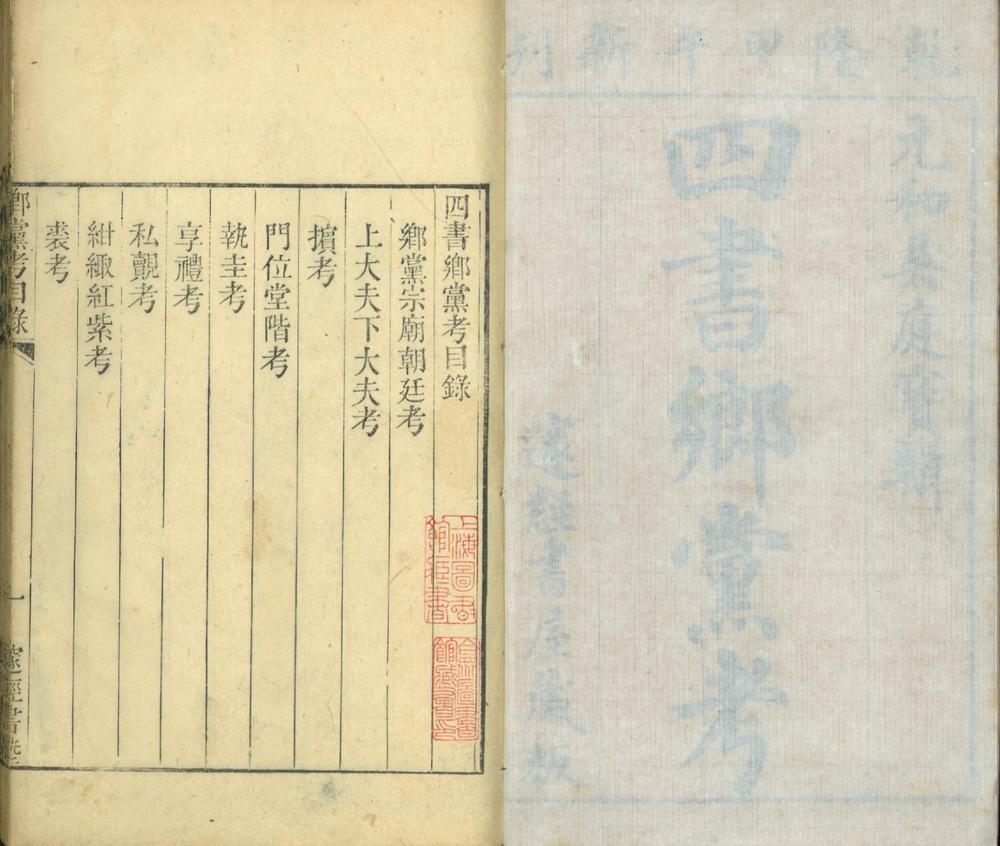 乾隆甲午新刊
四書鄉黨考
邃經書屋藏板
四書鄉黨考目錄
鄉黨宗廟朝廷考
上大夫下大夫考
擯考
門位堂階考
執圭考
享禮考
私覿考
紺緅紅紫考
裘考
鄉黨考目錄
一
上海圖書館藏書